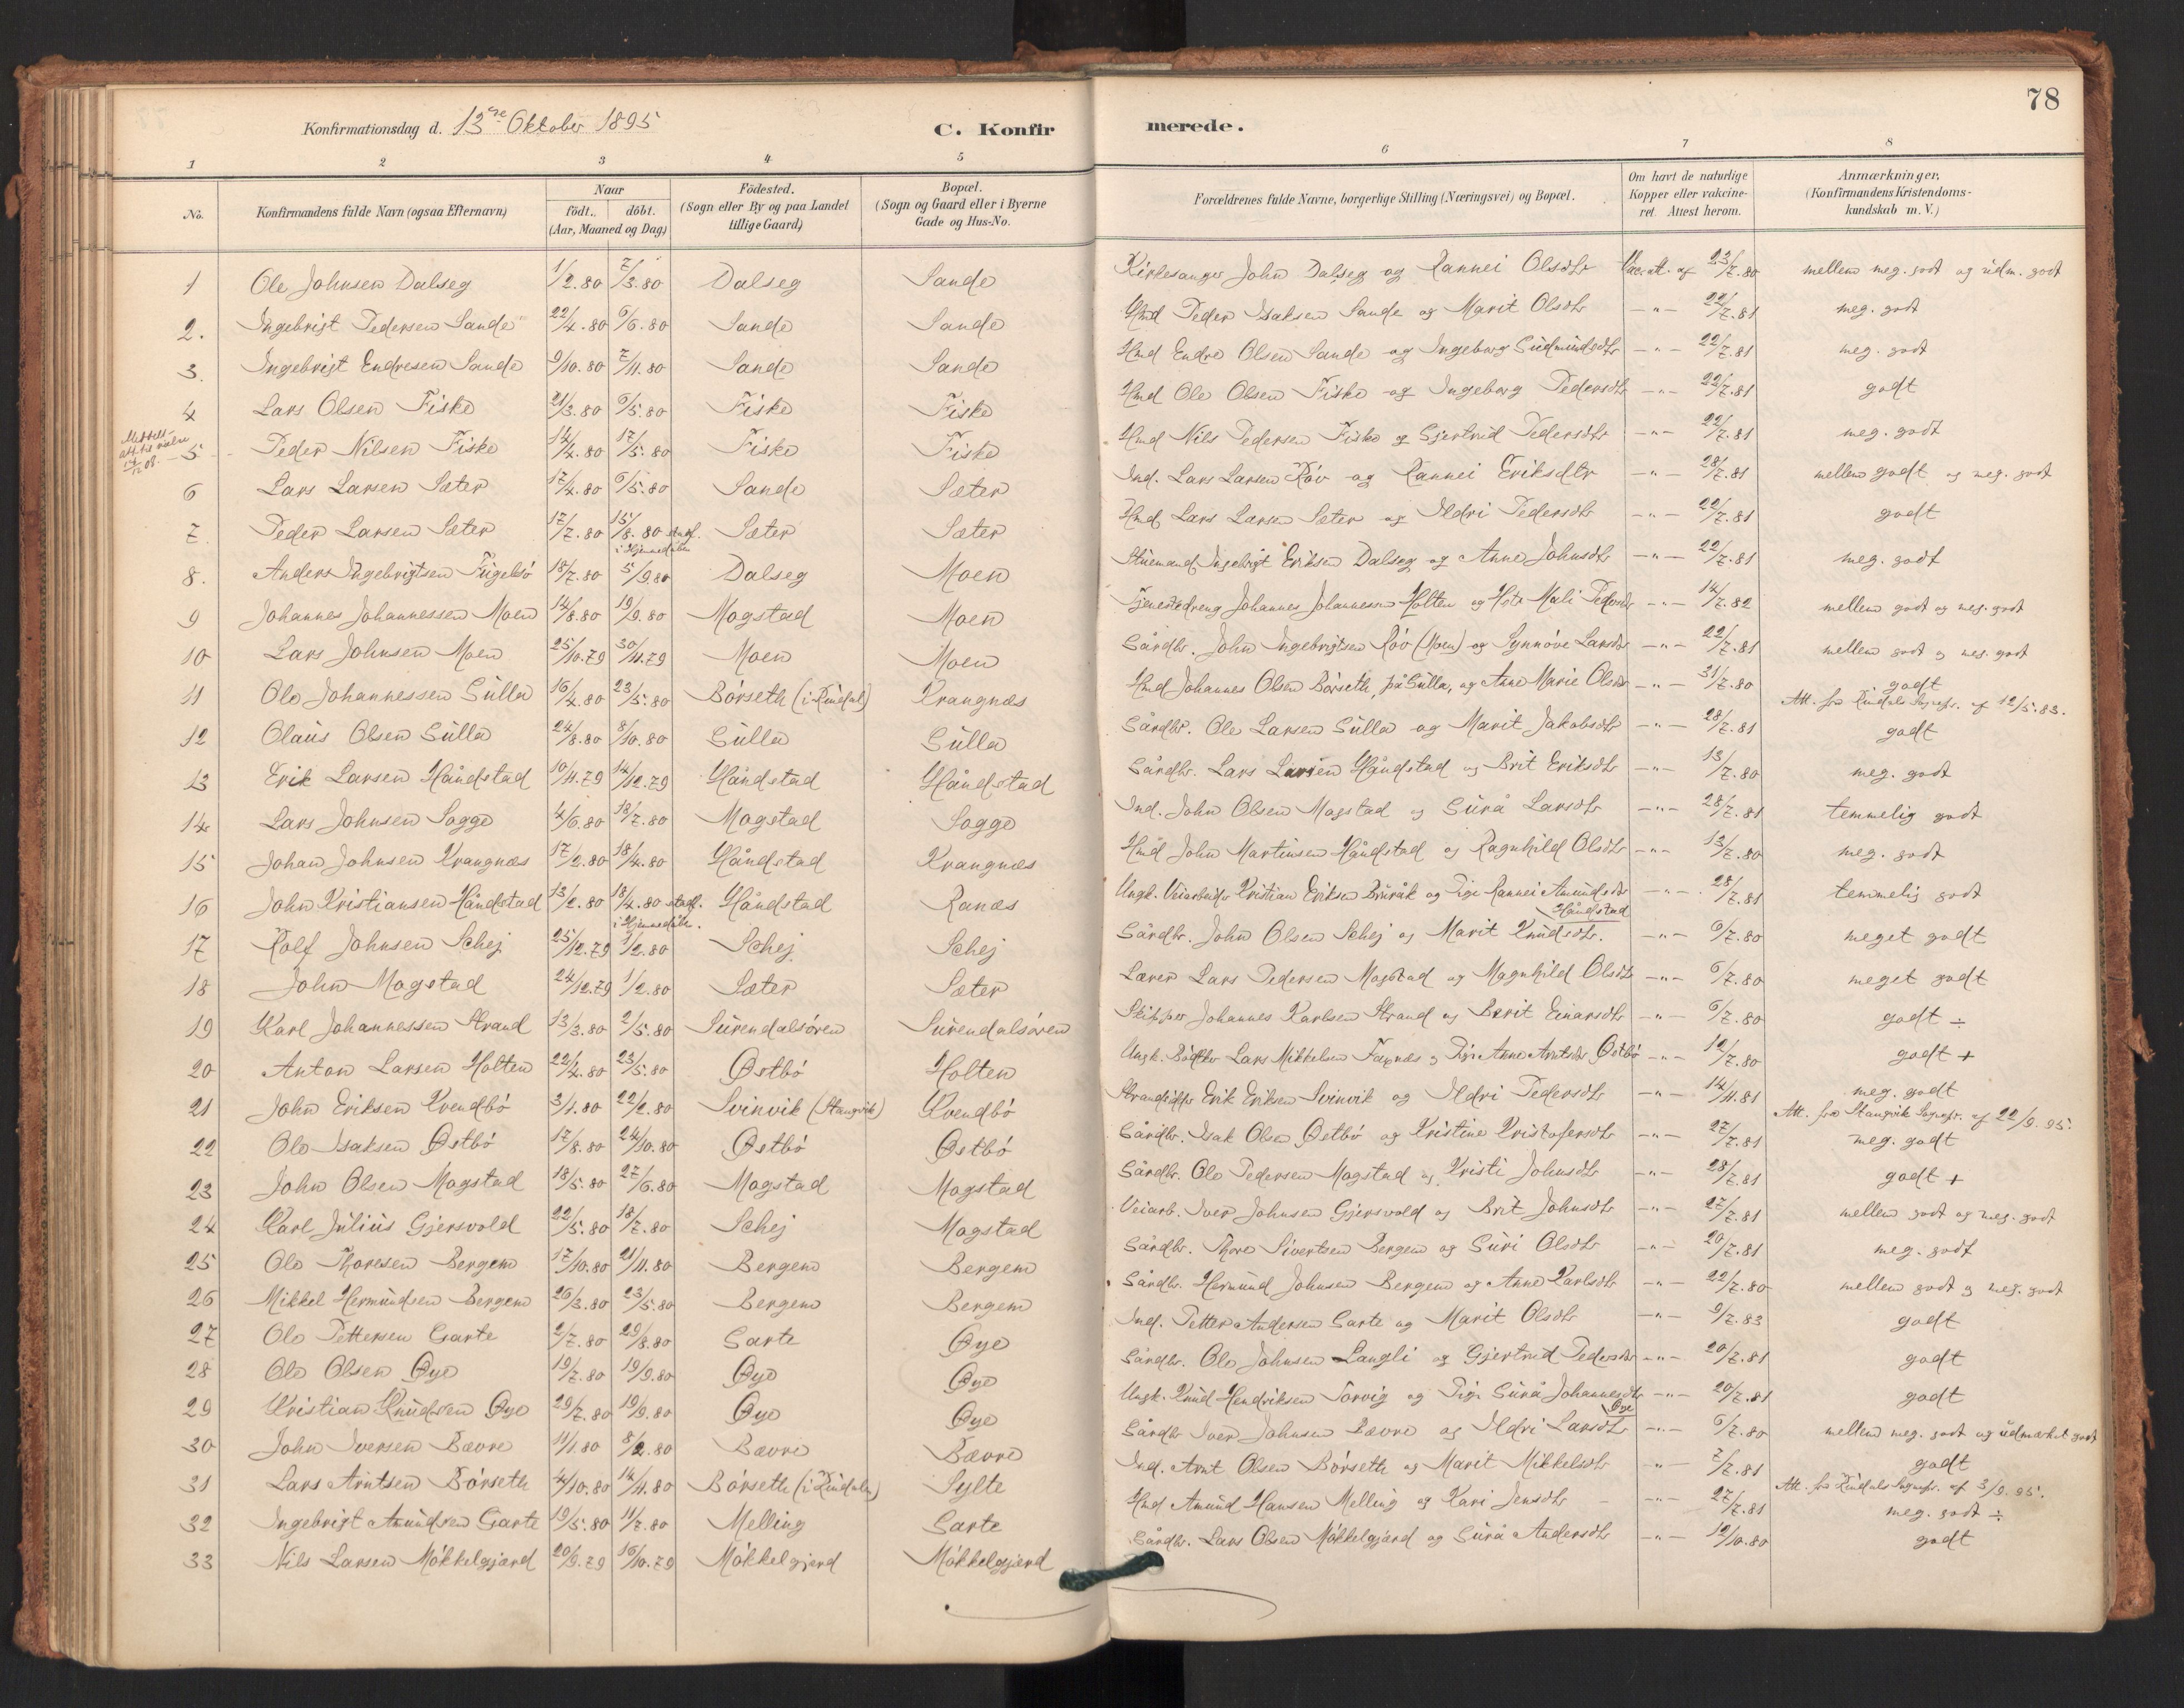 78
Konfirmationsdag d. 13de Oktober 1895
C. Konfirmerede.
1 2 3 4 5 6 7 8
No. Konfirmandens fulde Navn (ogsaa Efternavn) Naar født., døbt. (Aar, Maaned og Dag) Födested. (Sogn eller By og paa Landet tillige Gaard) Bopæl. (Sogn og Gaard eller i Byerne Gade og Hus-No. Forældrenes fulde Navne, borgerlige Stilling (Næringsvei) og Bopæl. Om havt de naturlige Kopper eller vakcineret. Attest herom. Anmærkninger, (Konfirmandens Kristendomskundskab m. V.)
1 Ole Johnsen Dalseg 1/2.80 7/3.80 Dalseg Sande Kirkesanger John Dalseg og Rannei Olsdtr Vac. att. af 23/7.80 mellem meg. godt og udm. godt
2. Ingebrigt Pedersen Sande 22/4.80 6/6.80 Sande Sande Hmd Peder Isaksen Sande og Marit Olsdtr -"- 22/7.81 meg. godt
3. Ingebrigt Endresen Sande 9/10.80 7/11.80 Sande Sande Hmd Endre Olsen Sande og Ingeborg Gudmundsdtr -"- 22/7.81 meg. godt
4 Lars Olsen Fiske 21/3.80 6/5.80 Fiske Fiske Hmd Ole Olsen Fiske og Ingeborg Pedersdtr -"- 22/7.81 godt
5 Peder Nilsen Fiske 14/4.80 17/5.80 Fiske Fiske Hmd Nils Pedersen Fiske og Gjertrud Pedersdtr -"- 22/7.81 meg. godt
6 Lars Larsen Sæter 17/4.80 6/5.80 Sande Sæter Ind. Lars Larsen Röv og Rannei Eriksdtr -"- 28/7.81 mellem godt og meg. godt
7. Peder Larsen Sæter 17/7.80 15/8.80 stadf. i Hjemmedåben Sæter Sæter Hmd Lars Larsen Sæter og Ildri Pedersdtr -"- 22/7.81 godt
8. Anders Ingebrigtsen Fugelsö 18/7.80 5/9.80 Dalseg Moen Ingebrigt Eriksen Dalseg og Anne Johnsdtr -"- 22/7.81 meg. godt
9 Johannes Johannessen Moen 14/8.80 19/9.80 Mogstad Moen Tjenestedreng Johannes Johannessen Holten og Mali Pedersdtr -"- 14/7.82 mellem godt og meg. godt
10 Lars Johnsen Moen 25/10.79 30/11.79 Moen Moen Gårdbr. John Ingebrigtsen Röv (Moen) og Synnöve Larsdtr -"- 22/7.81 mellem godt og meg. godt
11 Ole Johannessen Gulla 16/4.80 23/5.80 Börseth (i Rindal) Krangnæs Hmd Johannes Olsen Börseth, på Gulla, og Anne Marie Olsdtr -"- 31/7.80 godt
Att. fra Rindals Sognepr. af 12/5.83.
12 Olaus Olsen Gulla 24/8.80 8/10.80 Gulla Gulla Gårdbr. Ole Larsen Gulla og Marit Jakobsdtr -"- 28/7.81 godt
13 Erik Larsen Håndstad 10/11.79 14/12.79 Håndstad Håndstad Gårdbr. Lars Larsen Håndstad og Brit Eriksdtr -"- 13/7.80 meg. godt
14 Lars Johnsen Sogge 4/6.80 18/7.80 Mogstad Sogge Ind. John Olsen Mogstad og Gurå Larsdtr -"- 28/7.81 temmelig godt
15 Johan Johnsen Krangnæs 17/2.80 18/4.80 Håndstad Krangnæs Hmd John Martinsen Håndstad og Ragnhild Olsdtr -"- 13/7.80 meg. godt
16 John Kristiansen Håndstad 13/2.80 18/4.80 stadf. i Hjemmedåben. Håndstad Ranæs Ungk. Veiarbeider Kristian Eriksen Bruråk og Pige Rannei Amundsdtr Håndstad -"- 28/7.81 temmelig godt
17 Rolf Johnsen Schej 25/12.79 1/2.80 Schej Schej Gårdbr. John Olsen Schej og Marit Knudsdtr. -"- 6/7.80 meget godt
18 John Mogstad 24/12.79 1/2.80 Sæter Sæter Lærer Lars Pedersen Mogstad og Magnhild Olsdtr -"- 6/7.80 meget godt
19 Karl Johannessen Strand 13/3.80 2/5.80 Surendalsören Surendalsören Skipper Johannes Karlsen Strand og Berit Einarsdtr -"- 6/7.80 godt ÷
20 Anton Larsen Holten 22/4.80 23/5.80 Østbö Holten Ungk. Lars Mikkelsen og Pige Anne Arntsdtr Østbö -"- 12/7.80 godt +
21 John Eriksen Kvendbö 3/1.80 22/2.80 Svinvik (Stangvik) Kvendbö Strandsidder Erik Eriksen Svinvik og Ildri Pedersdtr -"- 14/11.81 meg. godt
Att. fra Stangvik Sognepr. af 22/9.95.
22 Ole Isaksen Østbö 17/8.80 24/10.80 Østbö Østbö Gårdbr. Isak Olsen Østbö og Kristine Kristofersdtr -"- 27/7.81 meg. godt
23 John Olsen Mogstad 18/5.80 27/6.80 Mogstad Mogstad Gårdbr. Ole Pedersen Mogstad og Kristi Johnsdtr -"- 28/7.81 godt +
24 Karl Julius Gjersvold 22/5.80 18/7.80 Schej Mogstad Veiarb. Iver Johnsen Gjersvold og Brit Johnsdtr -"- 27/7.81 mellem godt og meg. godt
25 Ole Thoresen Bergem 17/10.80 21/11.80 Bergem Bergem Gårdbr. Thore Sivertsen Bergem og Guri Olsdtr -"- 20/7.81 meg. godt
26 Mikkel Hermundsen Bergem 26/3.80 23/5.80 Bergem Bergem Gårdbr. Hermund Johnsen Bergem og Anne Karlsdtr -"- 22/7.80 mellem godt og meg. godt
27 Ole Pettersen Garte 2/7.80 29/8.80 Garte Øye Ind. Petter Andersen Garte og Marit Olsdtr -"- 9/7.83 godt
28 Ole Olsen Øye 19/7.80 19/9.80 Øye Øye Gårdbr. Ole Johnsen Langli og Gjertrud Pedersdtr -"- 20/7.81 godt
29 Kristian Knudsen Øye 29/7.80 19/9.80 Øye Øye Ungk. Knud Hendriksen Torvig og Pige Gurå Johannesdtr Øye -"- 20/7.81 godt
30 John Iversen Bævre 11/1.80 8/2.80 Bævre Bævre Gårdbr Iver Johnsen Bævre og Ildri Larsdtr -"- 6/7.80 mellem meg. godt og udmærket godt
31 Lars Arntsen Börseth 4/10.80 14/11.80 Börseth (i Rindalen) Sylte Ind. Arnt Olsen Börseth og Marit Mikkelsdtr -"- 7/7.81 godt
Att. fra Rindals Sognepr. af 3/9.95.
32 Ingebrigt Amundsen Garte 19/5.80 11/7.80 Melling Garte Hmd Amund Hansen Melling og Kari Jensdtr -"- 27/7.81 meg. godt ÷
33 Nils Larsen Mökkelgjærd 20/9.79 16/10.79 Mökkelgjerd Mökkelgjerd Gårdbr. Lars Olsen Mökkelgjærd og Gurå Andersdtr -"- 12/10.80 godt